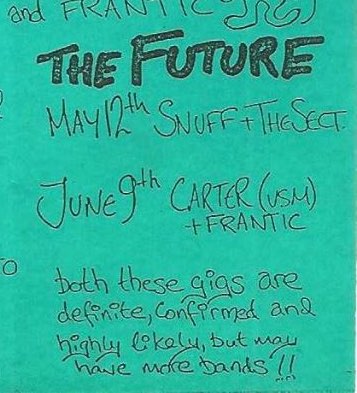 and FRANTIC
THE FUTURE
MAY 12th SNUFF + THE SECT.
JUNE 9th CARTER (USM)
+ FRANTIC
both these gigs are
definite, confirmed and
highly likely, but may
have more bands !!